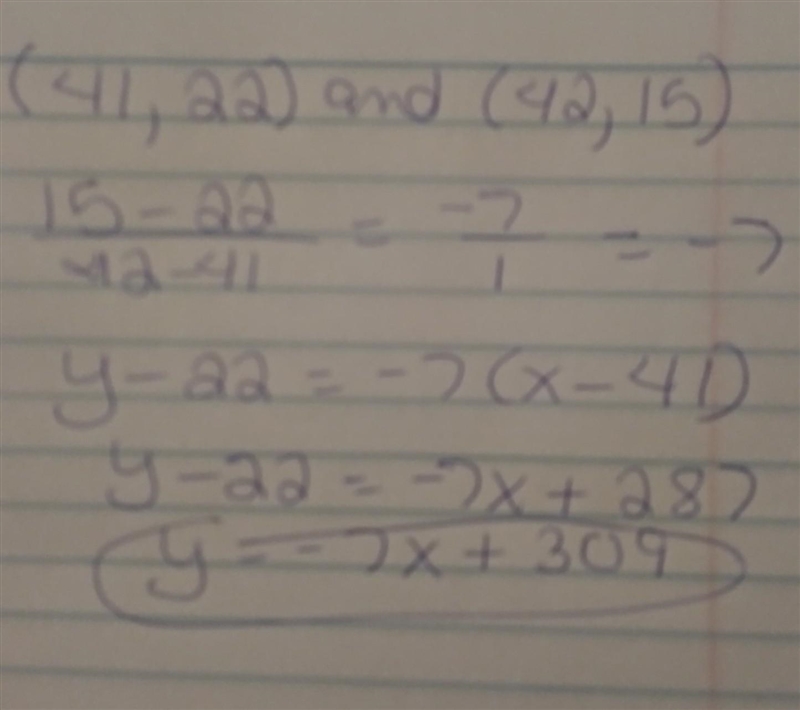 (41, 22) and (42, 15)
15 - 22 / 42 - 41 = -7 / 1 = -7
y - 22 = -7(x - 41)
y - 22 = -7x + 287
y = -7x + 309